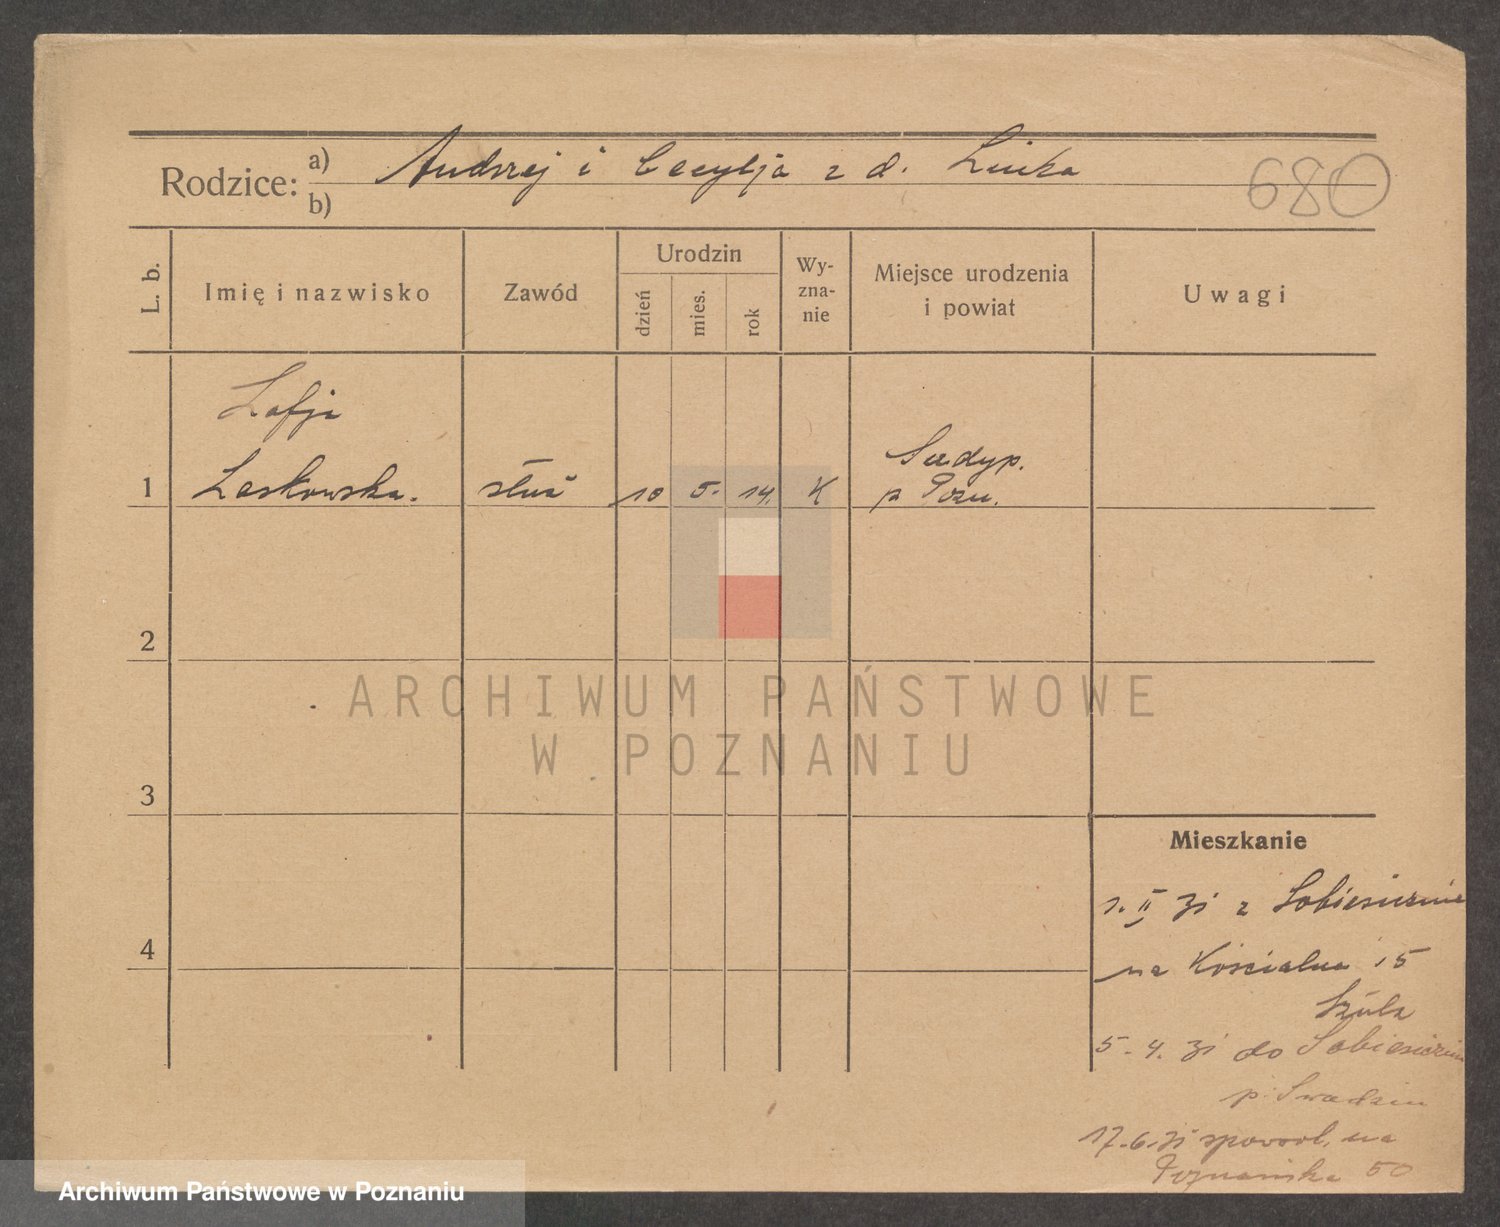 Rodzice:
a) Andrzej i Cecylja z d. Linka
b)
680
L. b.
Imię i nazwisko
Zawód
Urodzin
dzień
mies.
rok
Wy-
zna-
nie
Miejsce urodzenia
i powiat
Uwagi
Zofja
1 Laskowska. służ 10 5. 14. K
Sadyp.
p Pozn.
2
3
4
Mieszkanie
1. II 31 z
na Kościelna 15
5. 4. 31 do
p. Swadzim
17.6.31 spowrot, na
Poznańska 50
ARCHIWUM PAŃSTWOWE
W POZNANIU
Archiwum Państwowe w Poznaniu